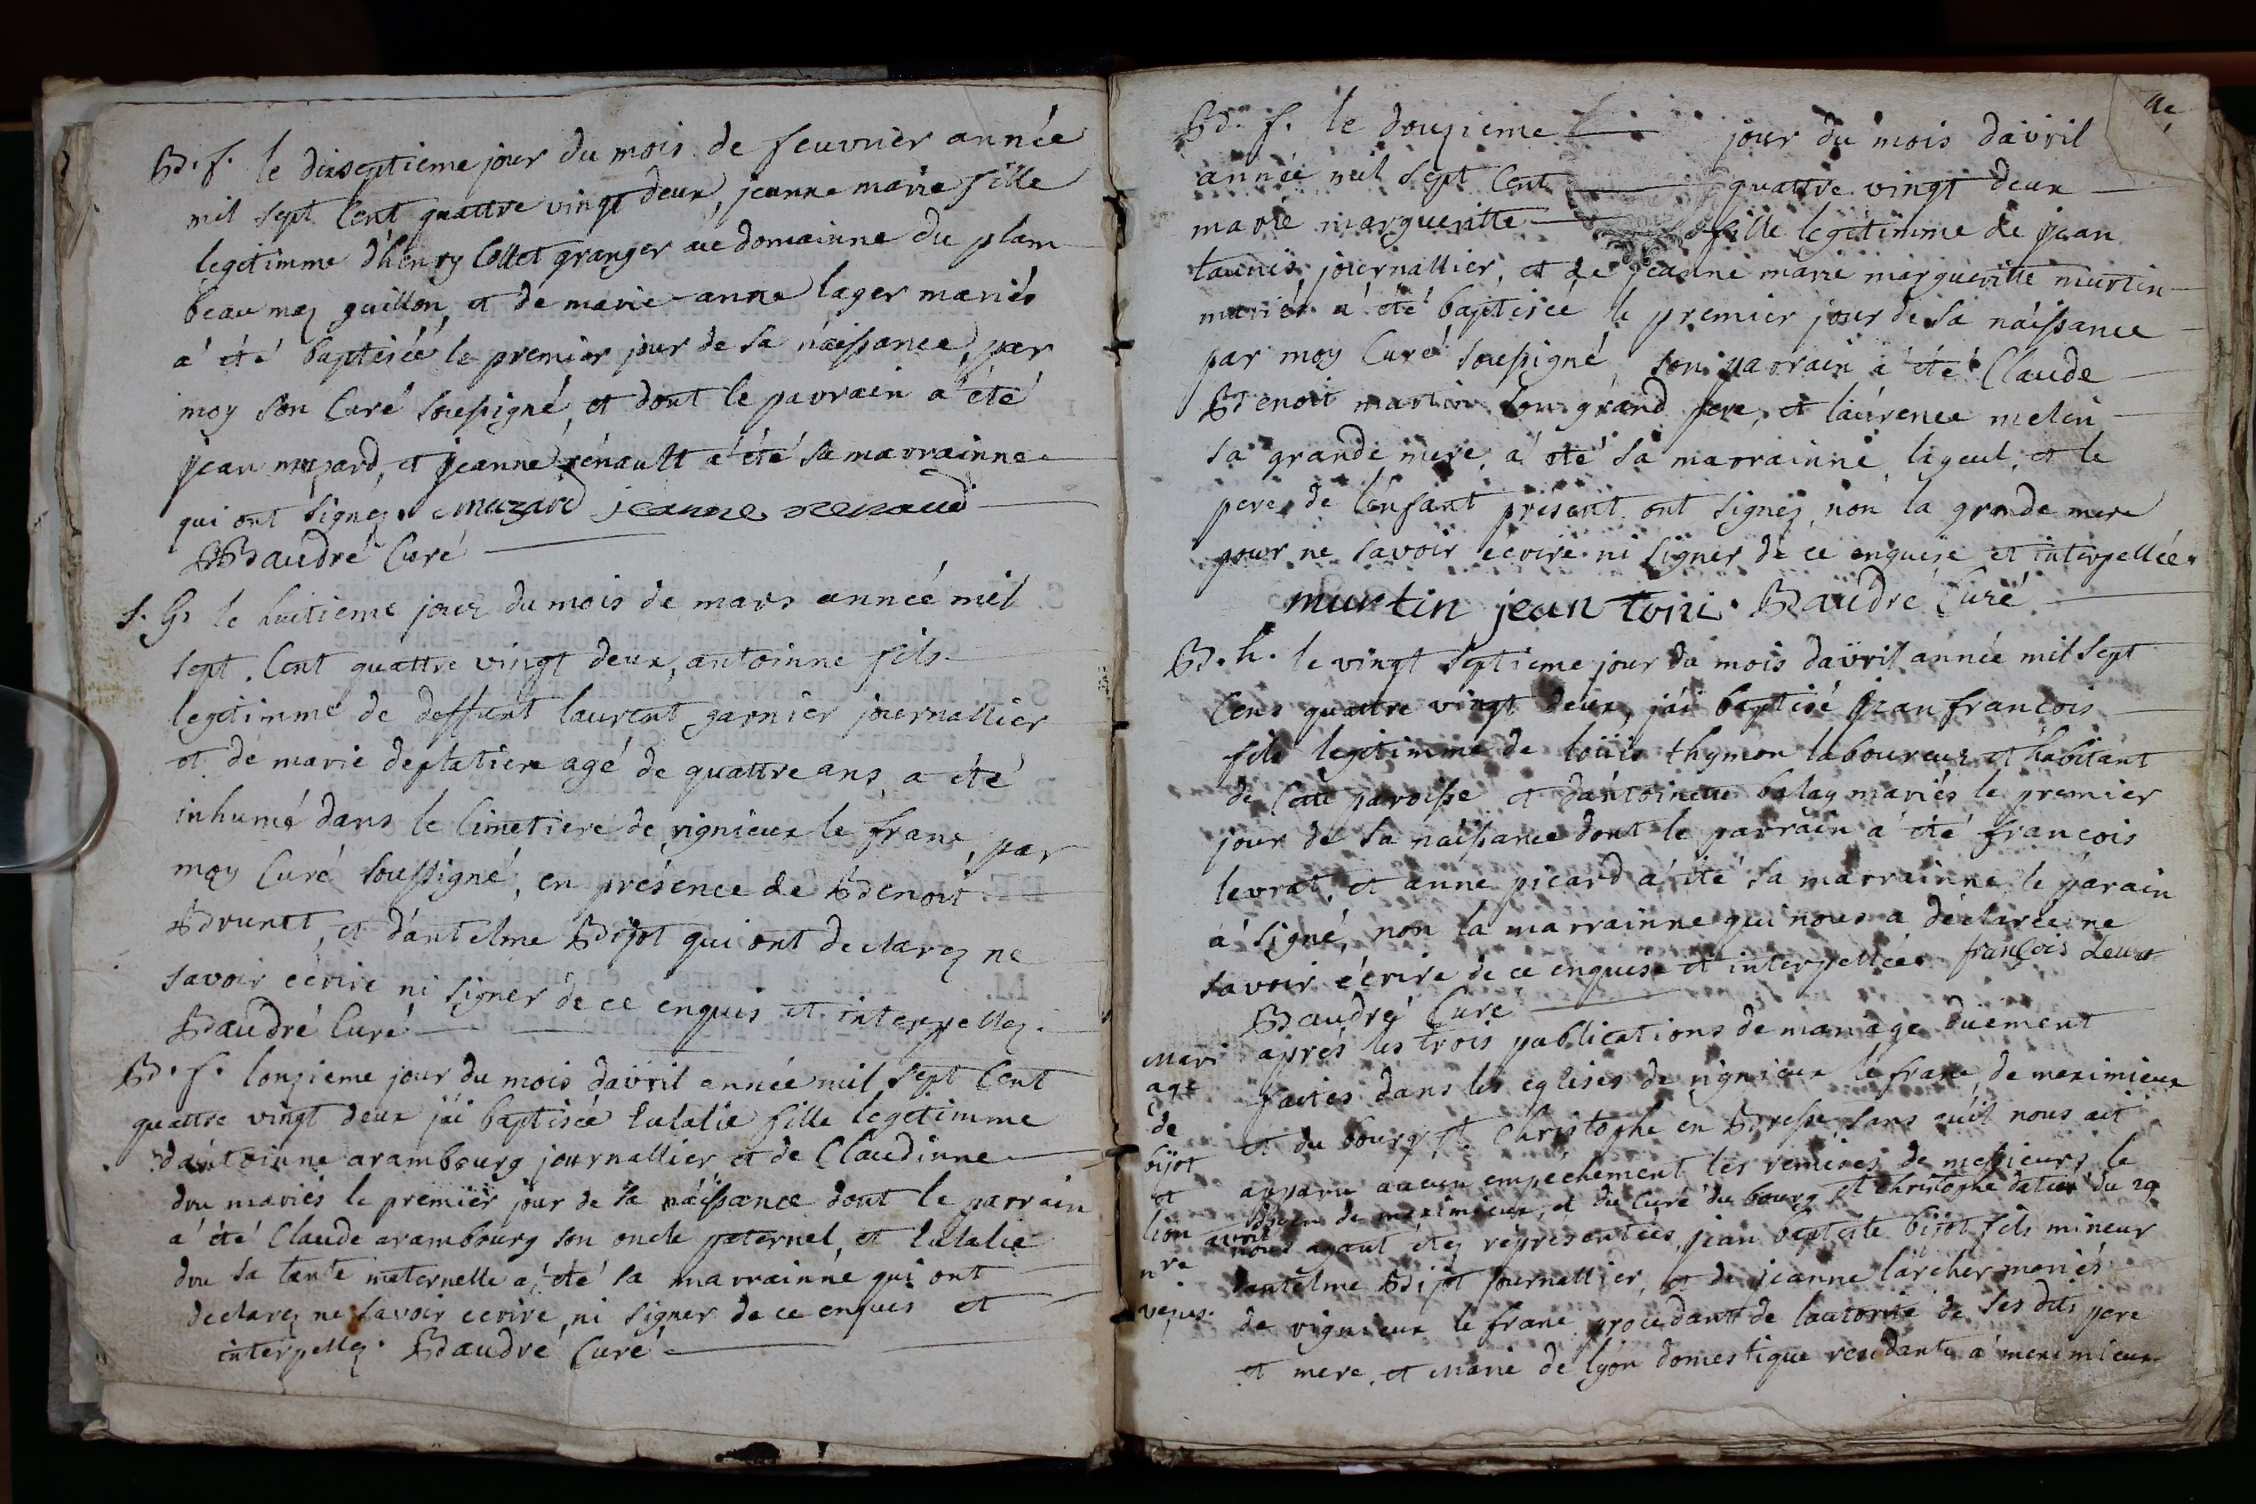 B. f. le dixseptieme jour du mois de feuvrier année
mil sept Cent quattre vingt deux, jeanne marie fille
legitimme d'henry Collet granger au domainne du plan
beau maz guillon, et de marie anne lager mariés
à été baptiséé le premier jour de sa náissance, par
moy son Curé soussigné, et dont le parrain a été
jean mazard, et jeanne rénault a été sa marrainne
qui ont signéz. mazard jeanne renaud
Baudré Curé
S. G. le huitieme jour du mois de mars année mil
sept Cent quattre vingt deux, antoinne fils
legitimme de deffunt laurent garnier journallier
et de marie deplatiere agé de quattre ans a été
inhumé dans le Cimetiere de rignieux le franc, par
moy Curé soussigné, en présence de Benoit
Brunet, et d'antelme Bijot qui ont declarez ne
savoir écrire ni signer de ce enquis et interpellez.
Baudré Curé
B. f. lonzieme jour du mois davril année mil sept Cent
quattre vingt deux j'ai baptisée Eulalie fille legitimme
d'antoinne arambourg journallier et de Claudinne
dru mariés le premier jour de sa náissance dont le parrain
à été Claude arambourg son oncle paternel, et Eulalie
dru sa tante maternelle a été sa marrainne qui ont
declarez ne savoir ecrire, ni signer de ce enquis et
interpellez. Baudré Curé
B. f. le douzieme jour du mois davril
année mil sept Cent quattre vingt deux
marie margueritte fille legitimme de jean
taunis, journallier, et de jeanne marie margueritte martin
mariés a été baptisée le premier jour de sa náissance
par moy Curé soussigné, son parrain a été Claude
Benoit martin son grand pere, et laurence melin
sa grande mere, a été sa marrainne, layeul, et le
pere de l'enfant présent ont signéz, non la grande mere
pour ne savoir écrire ni signer de ce enquise et interpellée.
martin jean toni. Baudré Curé
B. h. le vingt septieme jour du mois davril année mil sept
Cens quattre vingt deux, j'ai baptisé jean francois
fils legitimme de loüis thymon laboureur et habitant
de Cette paroisse et d'antoinette balay mariés le premier
jour de sa náissance dont le parrain a été francois
levrat, et anne picard a été sa marrainne, le parain
a signé, non la marrainne qui nous a déclarée ne
savoir écrire de ce enquise et interpellée. françois Levrat
Baudré Curé
Mari
age
de
bijot
et
lion
après les trois publications de mariage duement
faites dans les eglises de rignieux le franc, de meximieux
et du bourg St Christophe en Bresse sans qu'il nous ait
apparu aucun empêchement les remises de messieurs le
doyen de meximieux, et du Curé du bourg St christophe datées du 29
avril nous ayant étéz réprésentées, jean baptiste bijot fils mineur
d'antelme Bijot journallier, et de jeanne larcher mariés
de rignieux le franc procédant de lautorité de ses dits pere
et mere, et marie de lyon domestique residante à meximieux